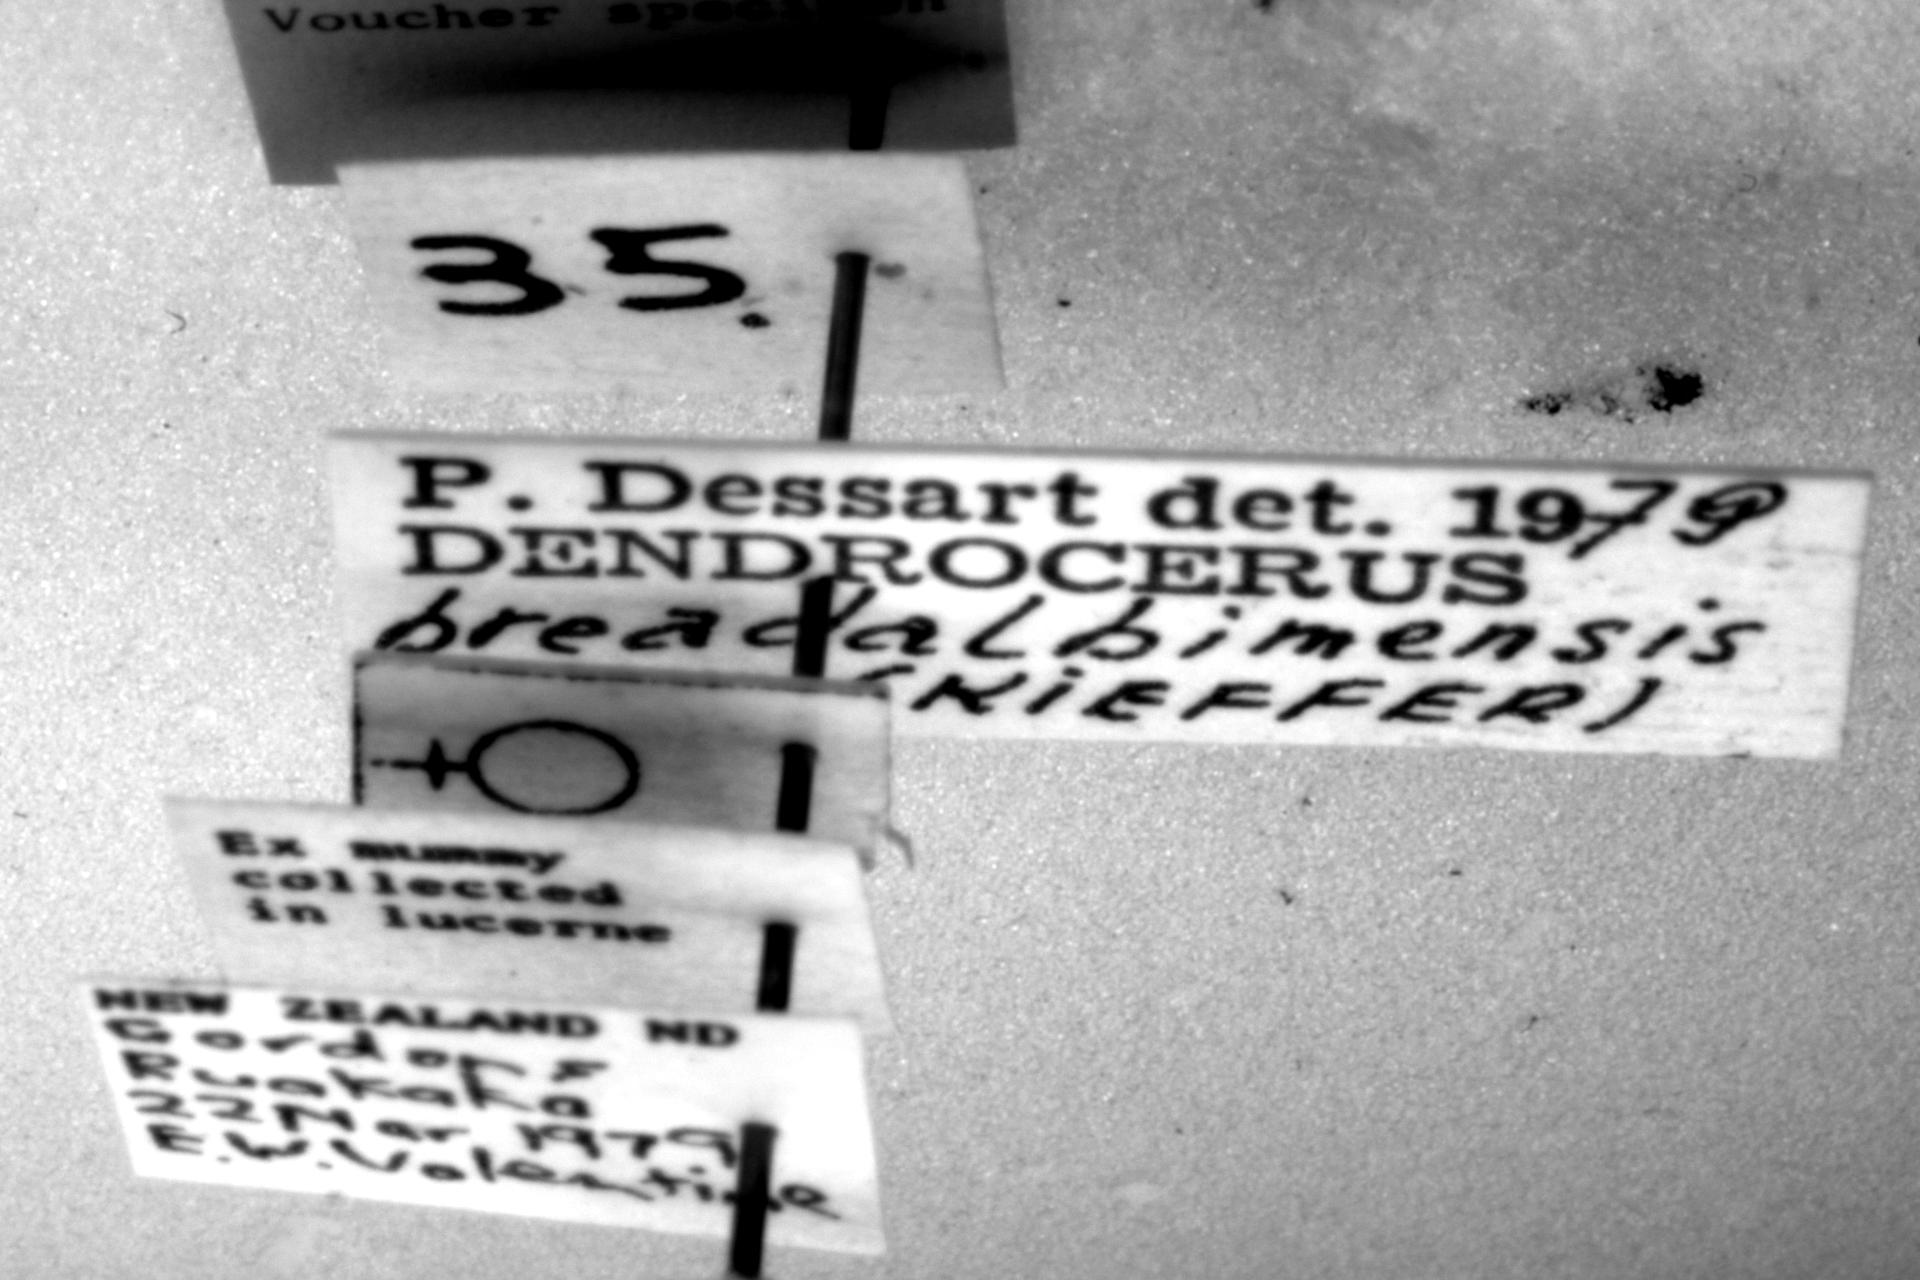 Voucher specimen
35.
P. Dessart det. 1979
DENDROCERUS
breadalbimensis
(KiEFFER)
Ex mummy
collected
in lucerne
NEW ZEALAND ND
Gordon F
Ruakaka
22 Mar 1979
E.W. Valentine